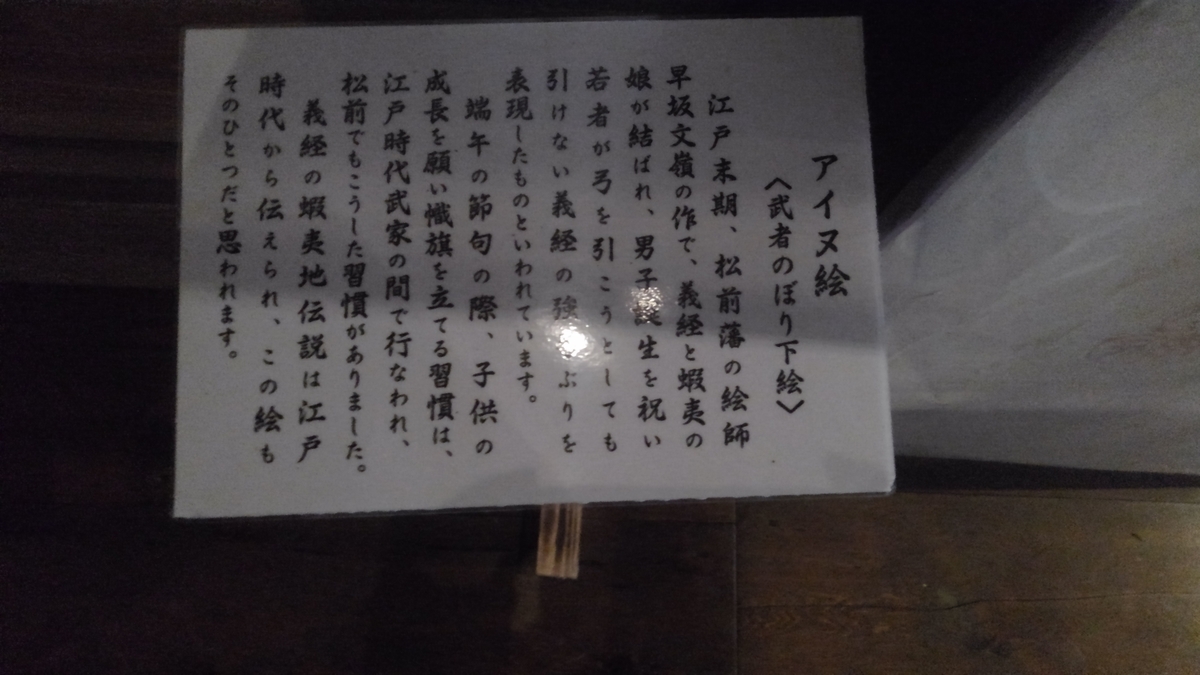 アイヌ絵
〈武者のぼり下絵〉
江戸末期、松前藩の絵師
早坂文嶺の作で、義経と蝦夷の
娘が結ばれ、男子誕生を祝い
若者が弓を引こうとしても
引けない義経の強ぶりを
表現したものといわれています。
端午の節句の際、子供の
成長を願い幟旗を立てる習慣は、
江戸時代武家の間で行なわれ、
松前でもこうした習慣がありました。
義経の蝦夷地伝説は江戸
時代から伝えられ、この絵も
そのひとつだと思われます。